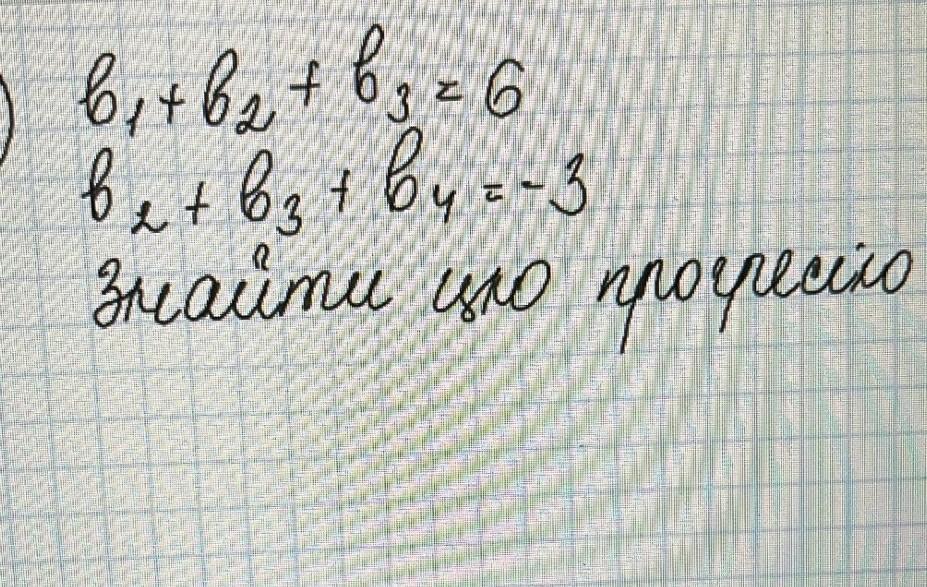 ) b₁ + b₂ + b₃ = 6
b₂ + b₃ + b₄ = -3
Знайти цю прогресію